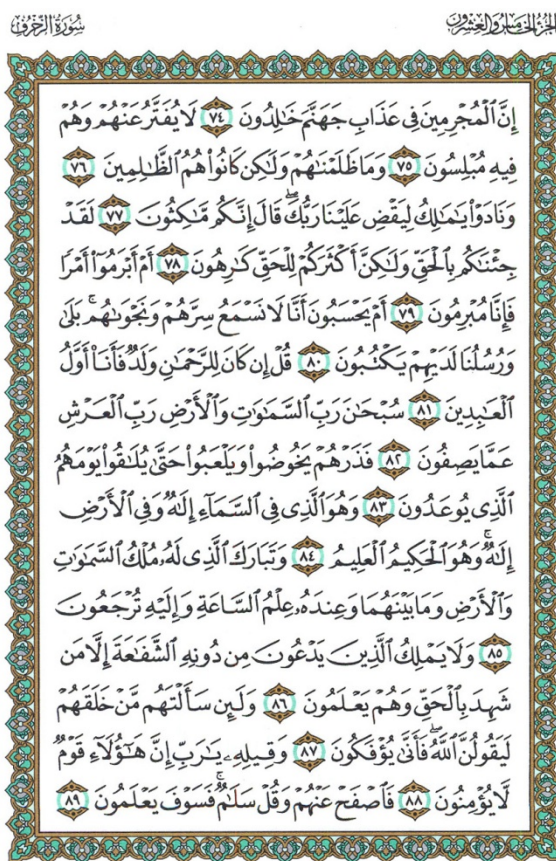 الجزء الخامس والعشرون
سورة الزخرف
إِنَّ ٱلْمُجْرِمِينَ فِى عَذَابِ جَهَنَّمَ خَٰلِدُونَ ٧٤ لَا يُفَتَّرُ عَنْهُمْ وَهُمْ
فِيهِ مُبْلِسُونَ ٧٥ وَمَا ظَلَمْنَٰهُمْ وَلَٰكِن كَانُوا۟ هُمُ ٱلظَّٰلِمِينَ ٧٦
وَنَادَوْا۟ يَٰمَٰلِكُ لِيَقْضِ عَلَيْنَا رَبُّكَ ۖ قَالَ إِنَّكُم مَّٰكِثُونَ ٧٧ لَقَدْ
جِئْنَٰكُم بِٱلْحَقِّ وَلَٰكِنَّ أَكْثَرَكُمْ لِلْحَقِّ كَٰرِهُونَ ٧٨ أَمْ أَبْرَمُوٓا۟ أَمْرًا
فَإِنَّا مُبْرِمُونَ ٧٩ أَمْ يَحْسَبُونَ أَنَّا لَا نَسْمَعُ سِرَّهُمْ وَنَجْوَىٰهُم ۚ بَلَىٰ
وَرُسُلُنَا لَدَيْهِمْ يَكْتُبُونَ ٨٠ قُلْ إِن كَانَ لِلرَّحْمَٰنِ وَلَدٌ فَأَنَا۠ أَوَّلُ
ٱلْعَٰبِدِينَ ٨١ سُبْحَٰنَ رَبِّ ٱلسَّمَٰوَٰتِ وَٱلْأَرْضِ رَبِّ ٱلْعَرْشِ
عَمَّا يَصِفُونَ ٨٢ فَذَرْهُمْ يَخُوضُوا۟ وَيَلْعَبُوا۟ حَتَّىٰ يُلَٰقُوا۟ يَوْمَهُمُ
ٱلَّذِى يُوعَدُونَ ٨٣ وَهُوَ ٱلَّذِى فِى ٱلسَّمَآءِ إِلَٰهٌ وَفِى ٱلْأَرْضِ
إِلَٰهٌ ۚ وَهُوَ ٱلْحَكِيمُ ٱلْعَلِيمُ ٨٤ وَتَبَارَكَ ٱلَّذِى لَهُۥ مُلْكُ ٱلسَّمَٰوَٰتِ
وَٱلْأَرْضِ وَمَا بَيْنَهُمَا وَعِندَهُۥ عِلْمُ ٱلسَّاعَةِ وَإِلَيْهِ تُرْجَعُونَ
٨٥ وَلَا يَمْلِكُ ٱلَّذِينَ يَدْعُونَ مِن دُونِهِ ٱلشَّفَٰعَةَ إِلَّا مَن
شَهِدَ بِٱلْحَقِّ وَهُمْ يَعْلَمُونَ ٨٦ وَلَئِن سَأَلْتَهُم مَّنْ خَلَقَهُمْ
لَيَقُولُنَّ ٱللَّهُ ۖ فَأَنَّىٰ يُؤْفَكُونَ ٨٧ وَقِيلِهِۦ يَٰرَبِّ إِنَّ هَٰٓؤُلَآءِ قَوْمٌ
لَّا يُؤْمِنُونَ ٨٨ فَٱصْفَحْ عَنْهُمْ وَقُلْ سَلَٰمٌ ۚ فَسَوْفَ يَعْلَمُونَ ٨٩